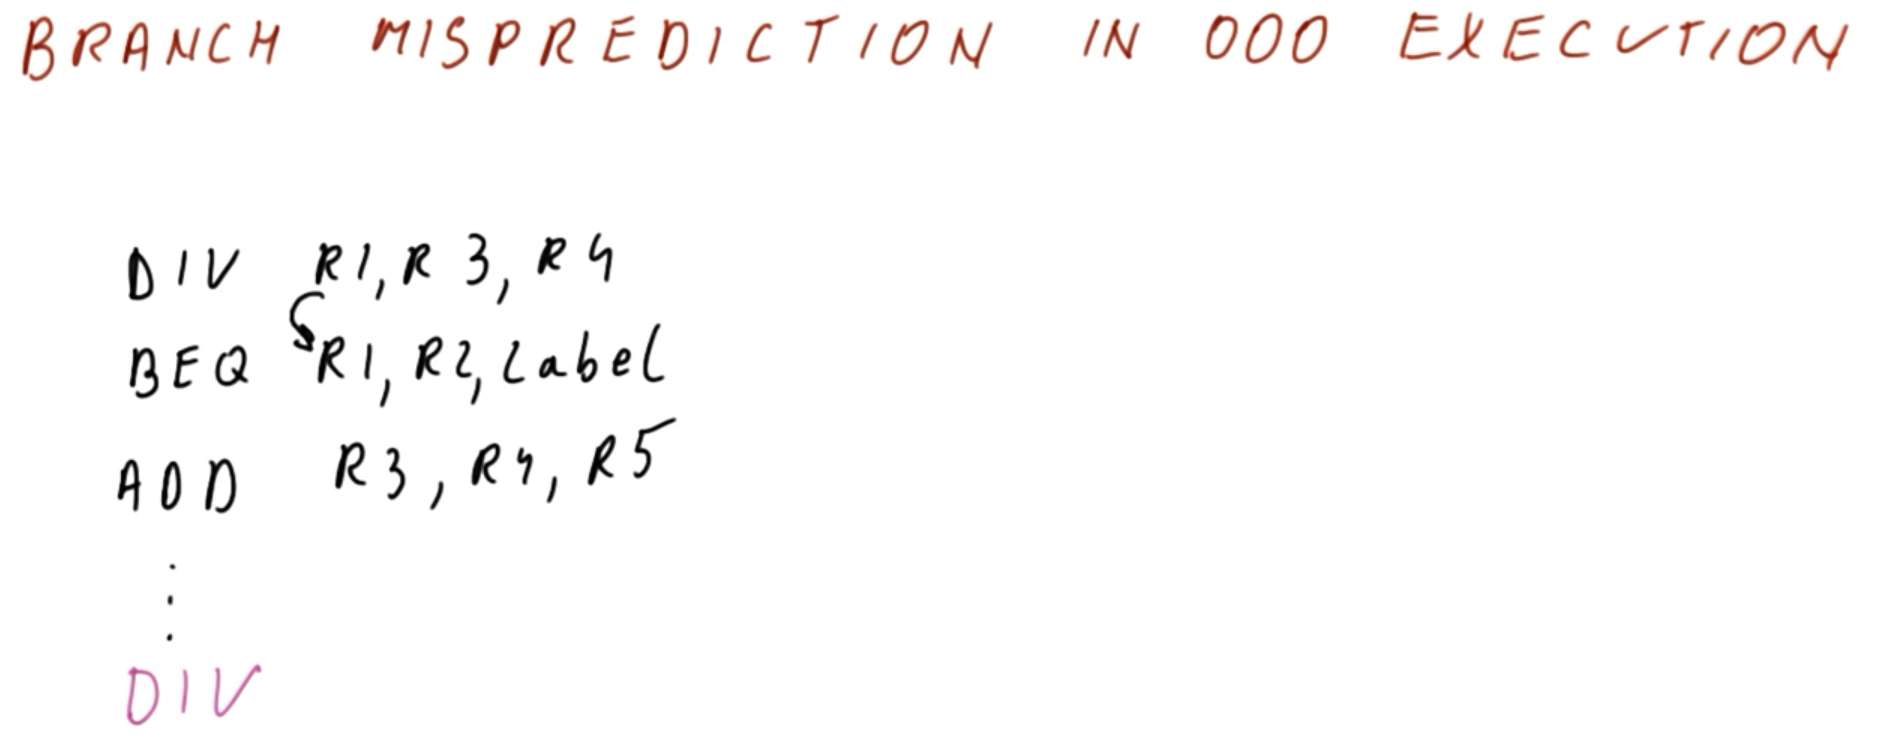 BRANCH MISPREDICTION IN OOO EXECUTION
DIV R1, R3, R4
BEQ R1, R2, Label
ADD R3, R4, R5
⋮
DIV